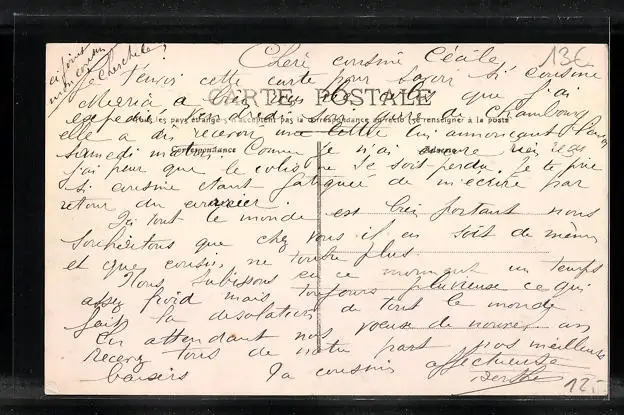 ci joint
mon cousin
Cherchell
13€
Cheri cousine Cécile
Je t'envois cette carte pour savoir si cousine
Maria a bien reçu le colis que j'ai
expédié samedi de Chambourg
CARTE POSTALE
Tous les pays étrangers n'acceptent pas la correspondance au recto (se renseigner à la poste)
elle a dû recevoir ma lettre lui annonçant
Correspondance
Adresse
samedi matin. Comme je n'ai encore rien reçu
j'ai peur que le colis ne se soit perdu. Je te prie
si cousine étant fatiguée de m'ecrire par
retour du courrier.
Ici tout le monde est bien portant nous
souhaitons que chez vous il en soit de même
et que cousin ne tombe plus.
Nous subissons en ce moment un temps
assez froid mais toujours pluvieuse ce qui
fait la désolation de tout le monde.
En attendant nos
recevez tous de notre part nos meilleurs
baisers Ta cousine affectueuse
Berthe
12.-